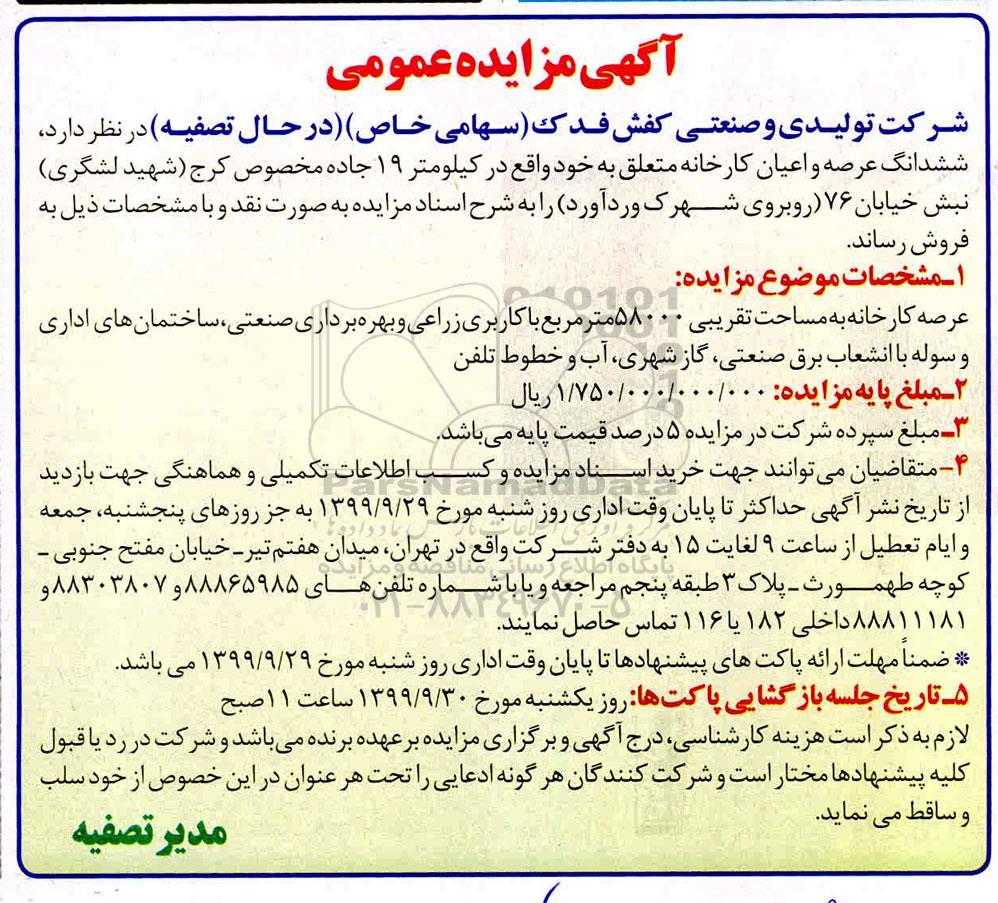 آگهی مزایده عمومی
شرکت تولیدی و صنعتی کفش فدک (سهامی خاص)(در حال تصفیه) در نظر دارد،
ششدانگ عرصه و اعیان کارخانه متعلق به خود واقع در کیلومتر ۱۹ جاده مخصوص کرج (شهید لشگری)
نبش خیابان ۷۶ (روبروی شهرک وردآورد) را به شرح اسناد مزایده به صورت نقد و با مشخصات ذیل به
فروش رساند.
۱ـ مشخصات موضوع مزایده:
عرصه کارخانه به مساحت تقریبی ۵۸۰۰۰ مترمربع با کاربری زراعی و بهره برداری صنعتی، ساختمان های اداری
و سوله با انشعاب برق صنعتی، گاز شهری، آب و خطوط تلفن
۲ـ مبلغ پایه مزایده: ۱/۷۵۰/۰۰۰/۰۰۰/۰۰۰ ریال
۳ـ مبلغ سپرده شرکت در مزایده ۵ درصد قیمت پایه می باشد.
۴- متقاضیان می توانند جهت خرید اسناد مزایده و کسب اطلاعات تکمیلی و هماهنگی جهت بازدید
از تاریخ نشر آگهی حداکثر تا پایان وقت اداری روز شنبه مورخ ۱۳۹۹/۹/۲۹ به جز روزهای پنجشنبه، جمعه
و ایام تعطیل از ساعت ۹ لغایت ۱۵ به دفتر شرکت واقع در تهران، میدان هفتم تیر ـ خیابان مفتح جنوبی ـ
کوچه طهمورث ـ پلاک ۳ طبقه پنجم مراجعه و یا با شماره تلفن های ۸۸۸۶۵۹۸۵ و ۸۸۳۰۳۸۰۷ و
۸۸۸۱۱۱۸۱ داخلی ۱۸۲ یا ۱۱۶ تماس حاصل نمایند.
* ضمناً مهلت ارائه پاکت های پیشنهادها تا پایان وقت اداری روز شنبه مورخ ۱۳۹۹/۹/۲۹ می باشد.
۵ـ تاریخ جلسه بازگشایی پاکت ها: روز یکشنبه مورخ ۱۳۹۹/۹/۳۰ ساعت ۱۱ صبح
لازم به ذکر است هزینه کارشناسی، درج آگهی و برگزاری مزایده بر عهده برنده می باشد و شرکت در رد یا قبول
کلیه پیشنهادها مختار است و شرکت کنندگان هر گونه ادعایی را تحت هر عنوان در این خصوص از خود سلب
و ساقط می نماید.
مدیر تصفیه
ParsNamadData
پایگاه اطلاع رسانی مناقصه و مزایده
۰۲۱-۸۸۳۴۹۶۷۰-۵